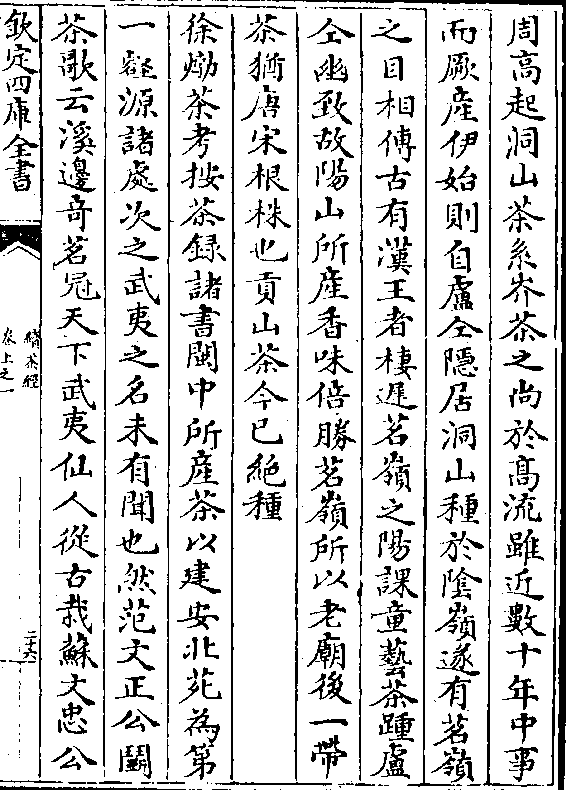 周高起洞山茶系岕茶之尚於髙流雖近數十年中事
而厥産伊始則自盧仝隠居洞山種於隂嶺遂有茗嶺
之目相傳古有漢王者棲遲茗嶺之陽課童藝茶踵盧
仝幽致故陽山所産香味倍勝茗嶺所以老廟後一帶
茶猶唐宋根株也貢山茶今已絶種
徐𤊹茶考按茶録諸書閩中所産茶以建安北苑為第
一壑源諸處次之武夷之名未有聞也然范文正公鬭
茶歌云溪邊竒茗冠天下武夷仙人從古栽蘇文忠公
欽定四庫全書
續茶經
卷上之一
二十六